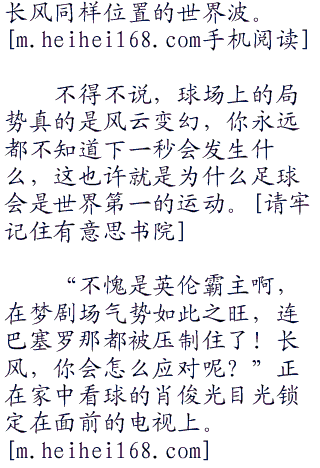 长风同样位置的世界波。
[m.heihei168.com手机阅读]
不得不说，球场上的局
势真的是风云变幻，你永远
都不知道下一秒会发生什
么，这也许就是为什么足球
会是世界第一的运动。[请牢
记住有意思书院]
“不愧是英伦霸主啊，
在梦剧场气势如此之旺，连
巴塞罗那都被压制住了！长
风，你会怎么应对呢？”正
在家中看球的肖俊光目光锁
定在面前的电视上。
[m.heihei168.com]